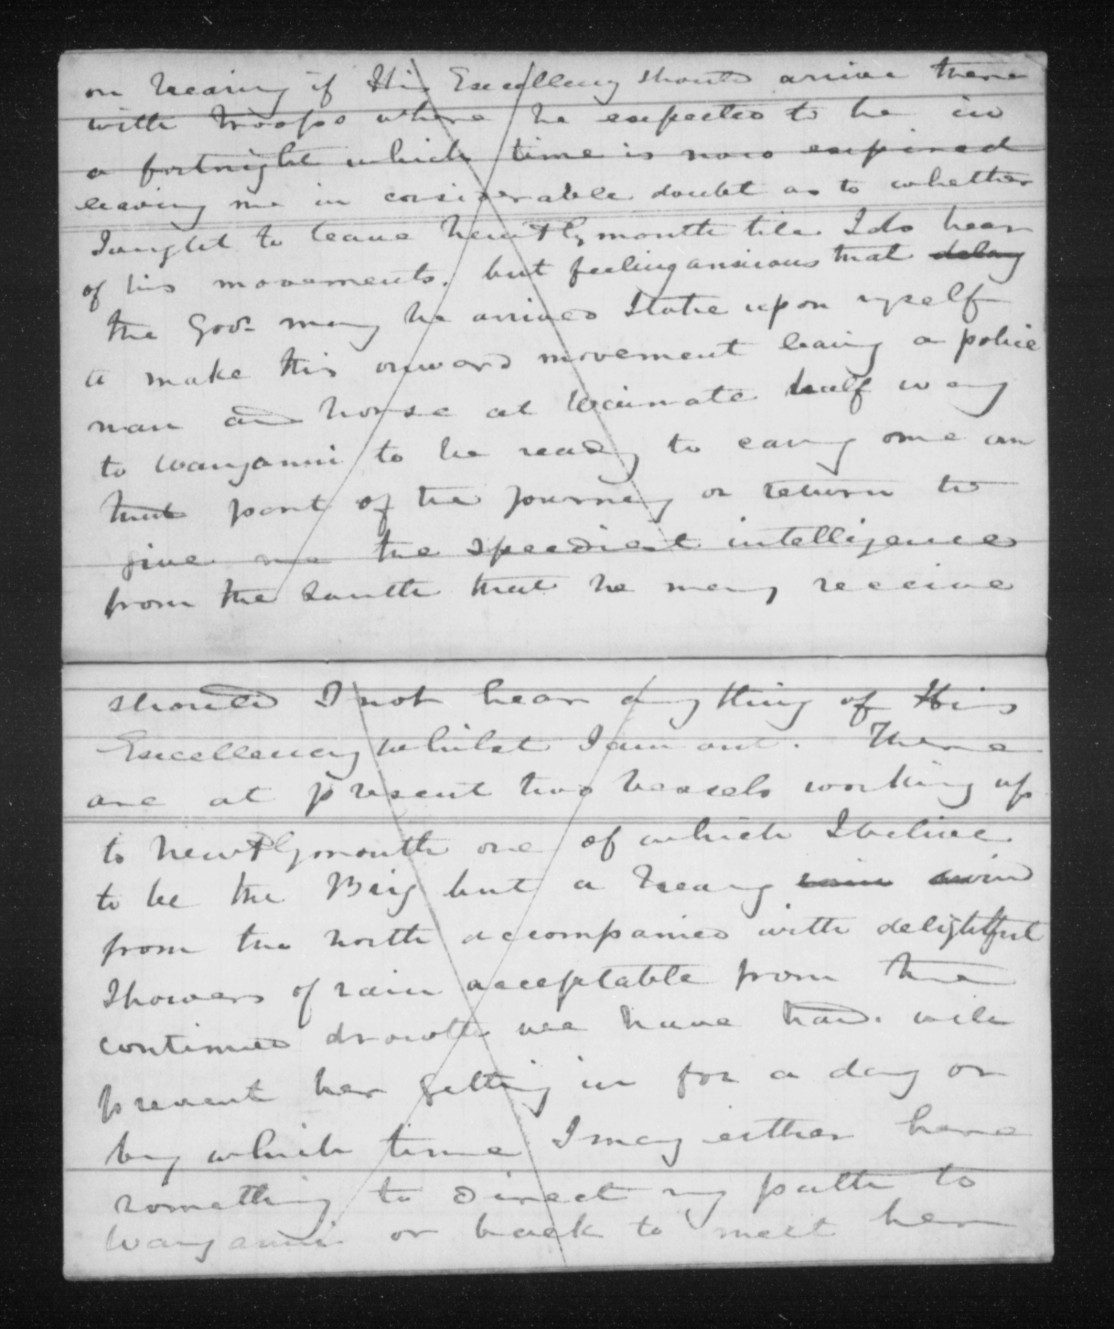 on hearing if His Excellency should arrive there
with troops where he expected to be in
a fortnight which time is now expired
leaving me in considerable doubt as to whether
I ought to leave New Plymouth till I do hear
of his movements. but feeling anxious that delay
the Govr may be arrived I take upon myself
to make this onward movement leaving a police
man and horse at Waimate half way
to Wanganui to be ready to carry me on
that part of the journey or return to
give me the speediest intelligence
from the South that he may receive
should I not hear anything of His
Excellency whilst I am out. There
are at present two vessels working up
to New Plymouth one of which I believe
to be the Brig but a heavy wind
from the north accompanied with delightful
showers of rain acceptable from the
continued drouth we have had. will
prevent her getting in for a day or
by which time I may either have
something to direct my path to
Wanganui or back to meet her